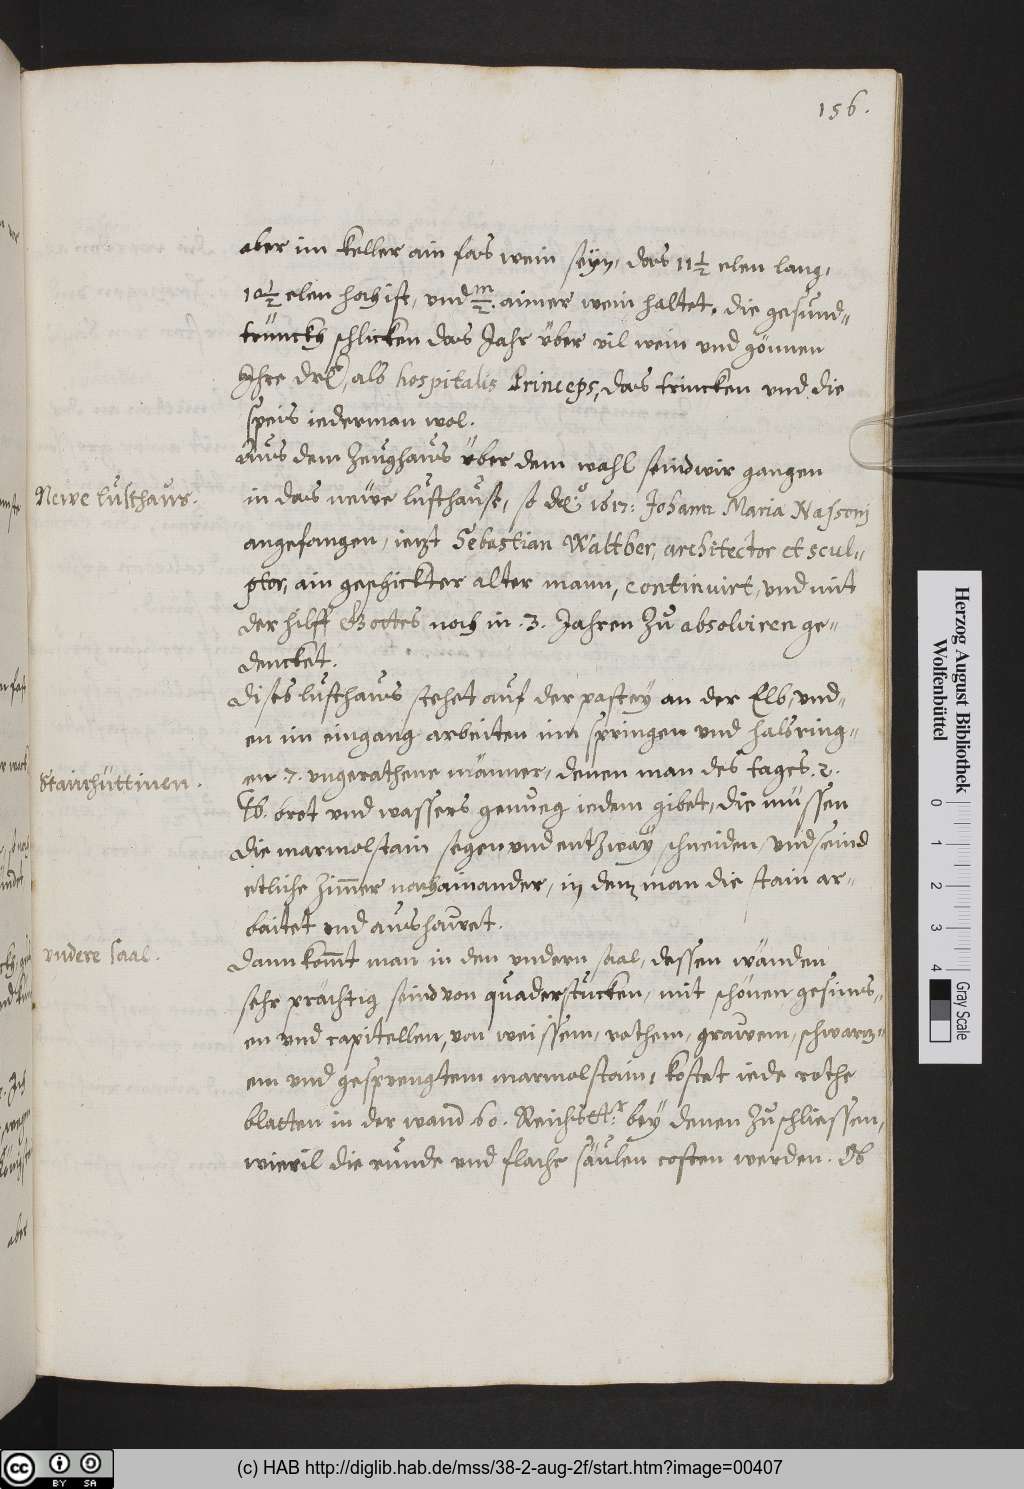 156.
aber im keller ain fas wein seyn, das 11½ elen lang,
10½ elen hoch ist, und m/2. aimer wein haltet. die gesund=
trünckh schlicken das Jahr über vil wein und gönnen
Ihre drl, als hospitalis Princeps, das trincken und die
speis iederman wol.
Aus dem Zeughaus über dem wahl seind wir gangen
Newe lusthaus.
in das newe lusthauß, so 1617: Johann Maria Nassonj
angefangen, ietzt Sebastian Walther, architector et scul=
ptor, ain geschickter alter mann, continuirt, und mit
der hilff Gottes noch in 3. Jahren zu absolviren ge=
dencket.
dises lusthaus stehet auf der pastey an der Elb, und=
en im eingang arbeiten inn springen und halsring=
Stainhüttinen.
en 7. ungerathene männer, denen man des tages 2.
lb. brot und wassers genueg iedem gibet, die müssen
die marmolstain segen und entzway schneiden, und seind
etliche zimmer nachainander, in denen man die stain ar=
baitet und aushauet.
undere saal.
dann kommt man in den undern saal, dessen wänden
sehr prächtig seind von quaderstucken, mit schönen gesims=
en und capitellen, von weissem, rothem, grawem, schwartz=
em und gesprengtem marmolstain, kostet iede rothe
blatten in der wand 60. Reichsthr. bey denen zuschliessen,
wievil die runde und flache säulen costen werden. Ob
Herzog August Bibliothek
Wolfenbüttel
0 1 2 3 4
Gray Scale
cc BY SA
(c) HAB http://diglib.hab.de/mss/38-2-aug-2f/start.htm?image=00407